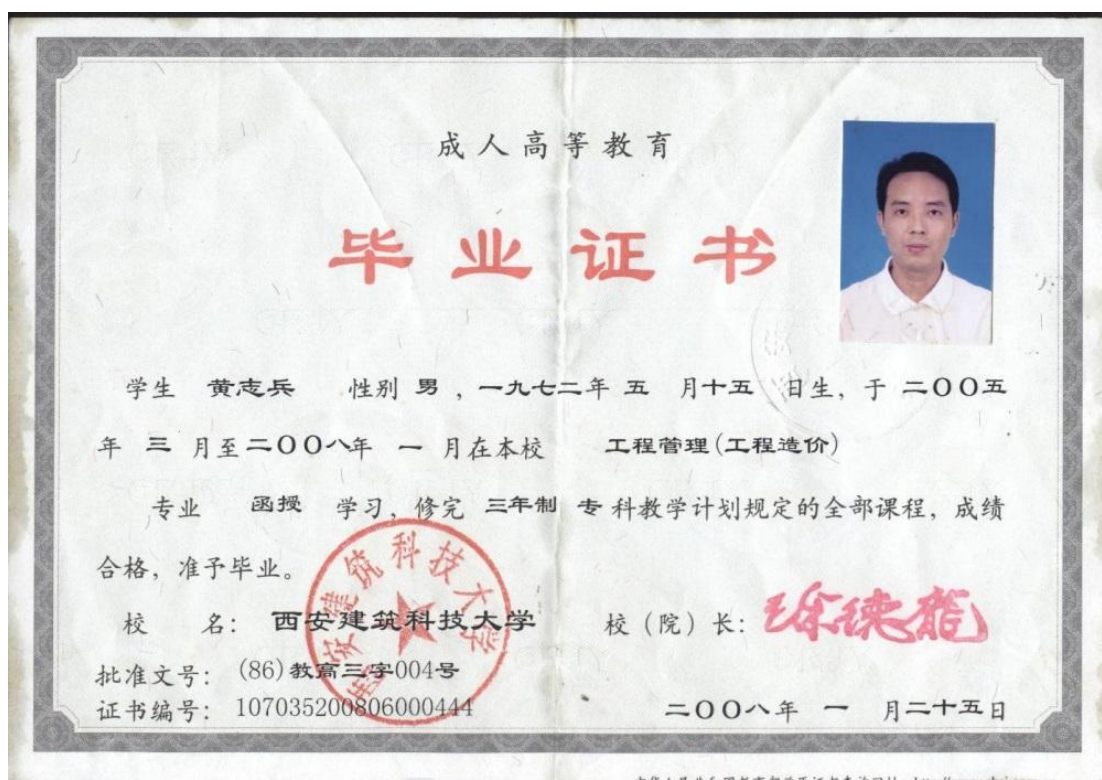 成人高等教育
毕业证书
学生 黄志兵 性别 男 , 一九七二年 五 月十五 日生, 于 二〇〇五
年 三 月至二〇〇八年 一 月在本校 工程管理(工程造价)
专业 函授 学习, 修完 三年制 专 科教学计划规定的全部课程, 成绩
合格, 准予毕业。
校 名: 西安建筑科技大学 校 (院) 长: 徐德龙
批准文号: (86)教高三字004号
证书编号: 107035200806000444 二〇〇八年 一 月二十五日
西安建筑科技大学